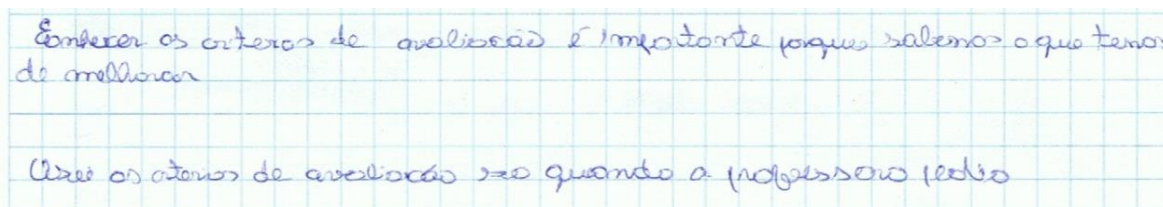 Conhecer os criteros de avaliação é importante porque sabemos o que temos
de melhorar
Usei os criterios de avaliação so quando a professora pedio